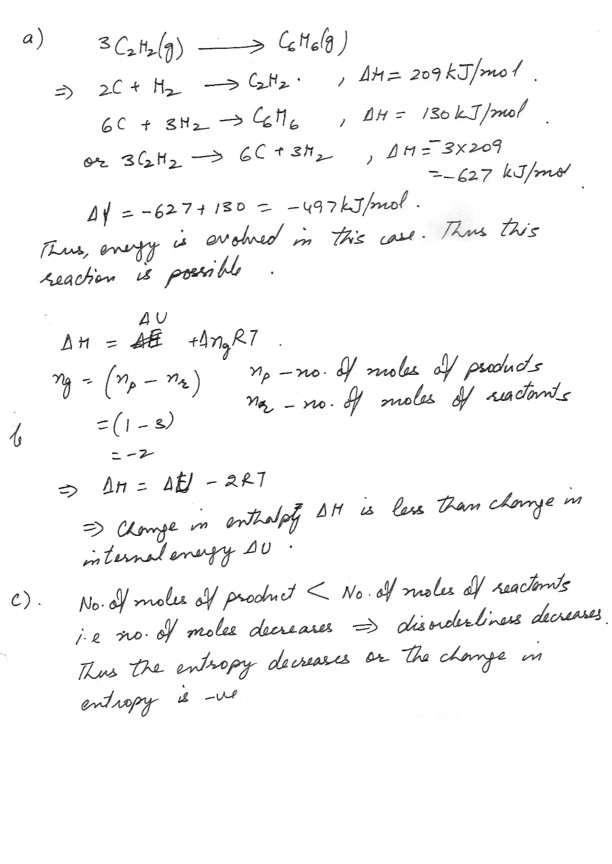 a) 3C2H2(g) ⟶ C6H6(g)
⇒ 2C + H2 → C2H2. , ΔH = 209 kJ/mol.
6C + 3H2 → C6H6 , ΔH = 130 kJ/mol.
or 3C2H2 → 6C + 3H2 , ΔH = -3×209
= -627 kJ/mol
ΔH = -627 + 130 = -497 kJ/mol.
Thus, energy is evolved in this case. Thus this
reaction is possible.
ΔU
ΔH = ΔE + ΔngRT.
ng = (np - nr) np - no. of moles of products
= (1 - 3) nr - no. of moles of reactants
b = -2
⇒ ΔH = ΔU - 2RT
⇒ Change in enthalpy ΔH is less than change in
internal energy ΔU.
c). No. of moles of product < No. of moles of reactants
i.e no. of moles decreases ⇒ disorderliness decreases.
Thus the entropy decreases or the change in
entropy is -ve